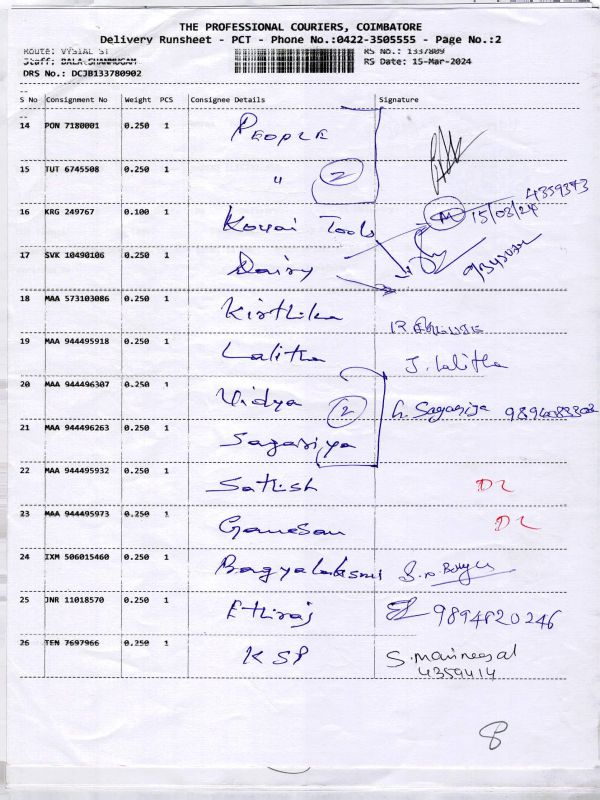 THE PROFESSIONAL COURIERS, COIMBATORE
Delivery Runsheet - PCT - Phone No.:0422-3505555 - Page No.:2
Route: VYSIAL ST
RS No.: 1337809
Staff: BALA SHANMUGAM
RS Date: 15-Mar-2024
DRS No.: DCJB133780902
S No Consignment No Weight PCS Consignee Details Signature
14 PON 7180001 0.250 1 PEOPLE
15 TUT 6745508 0.250 1 " 2
4359343
16 KRG 249767 0.100 1 Kovai Tools 15/03/24
17 SVK 10490106 0.250 1 Dairy
18 MAA 573103086 0.250 1 Kirthika
19 MAA 944495918 0.250 1 Lalitha J. Lalitha
20 MAA 944496307 0.250 1 Vidya 2 G. Sagariya
21 MAA 944496263 0.250 1 Sagariya
22 MAA 944495932 0.250 1 Sathish DL
23 MAA 944495973 0.250 1 Ganesan DL
24 IXM 506015460 0.250 1 Bagyalakshmi
25 JNR 11018570 0.250 1 Ethiraj 9894820246
26 TEN 7697966 0.250 1 KSP
4359414
8